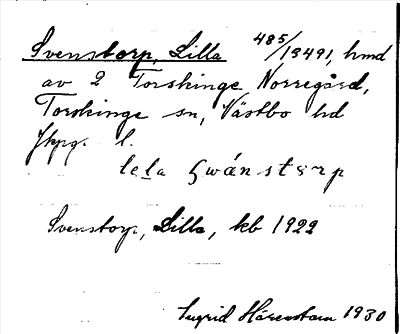 Svenstorp, Lilla 485/13491, hmd
av 2 Torskinge Norregård,
Torskinge sn, Västbo hd
Jkpgs l.
lela swánstorp
Svenstorp, Lilla, kb 1922
Ingrid Hårenstam 1930